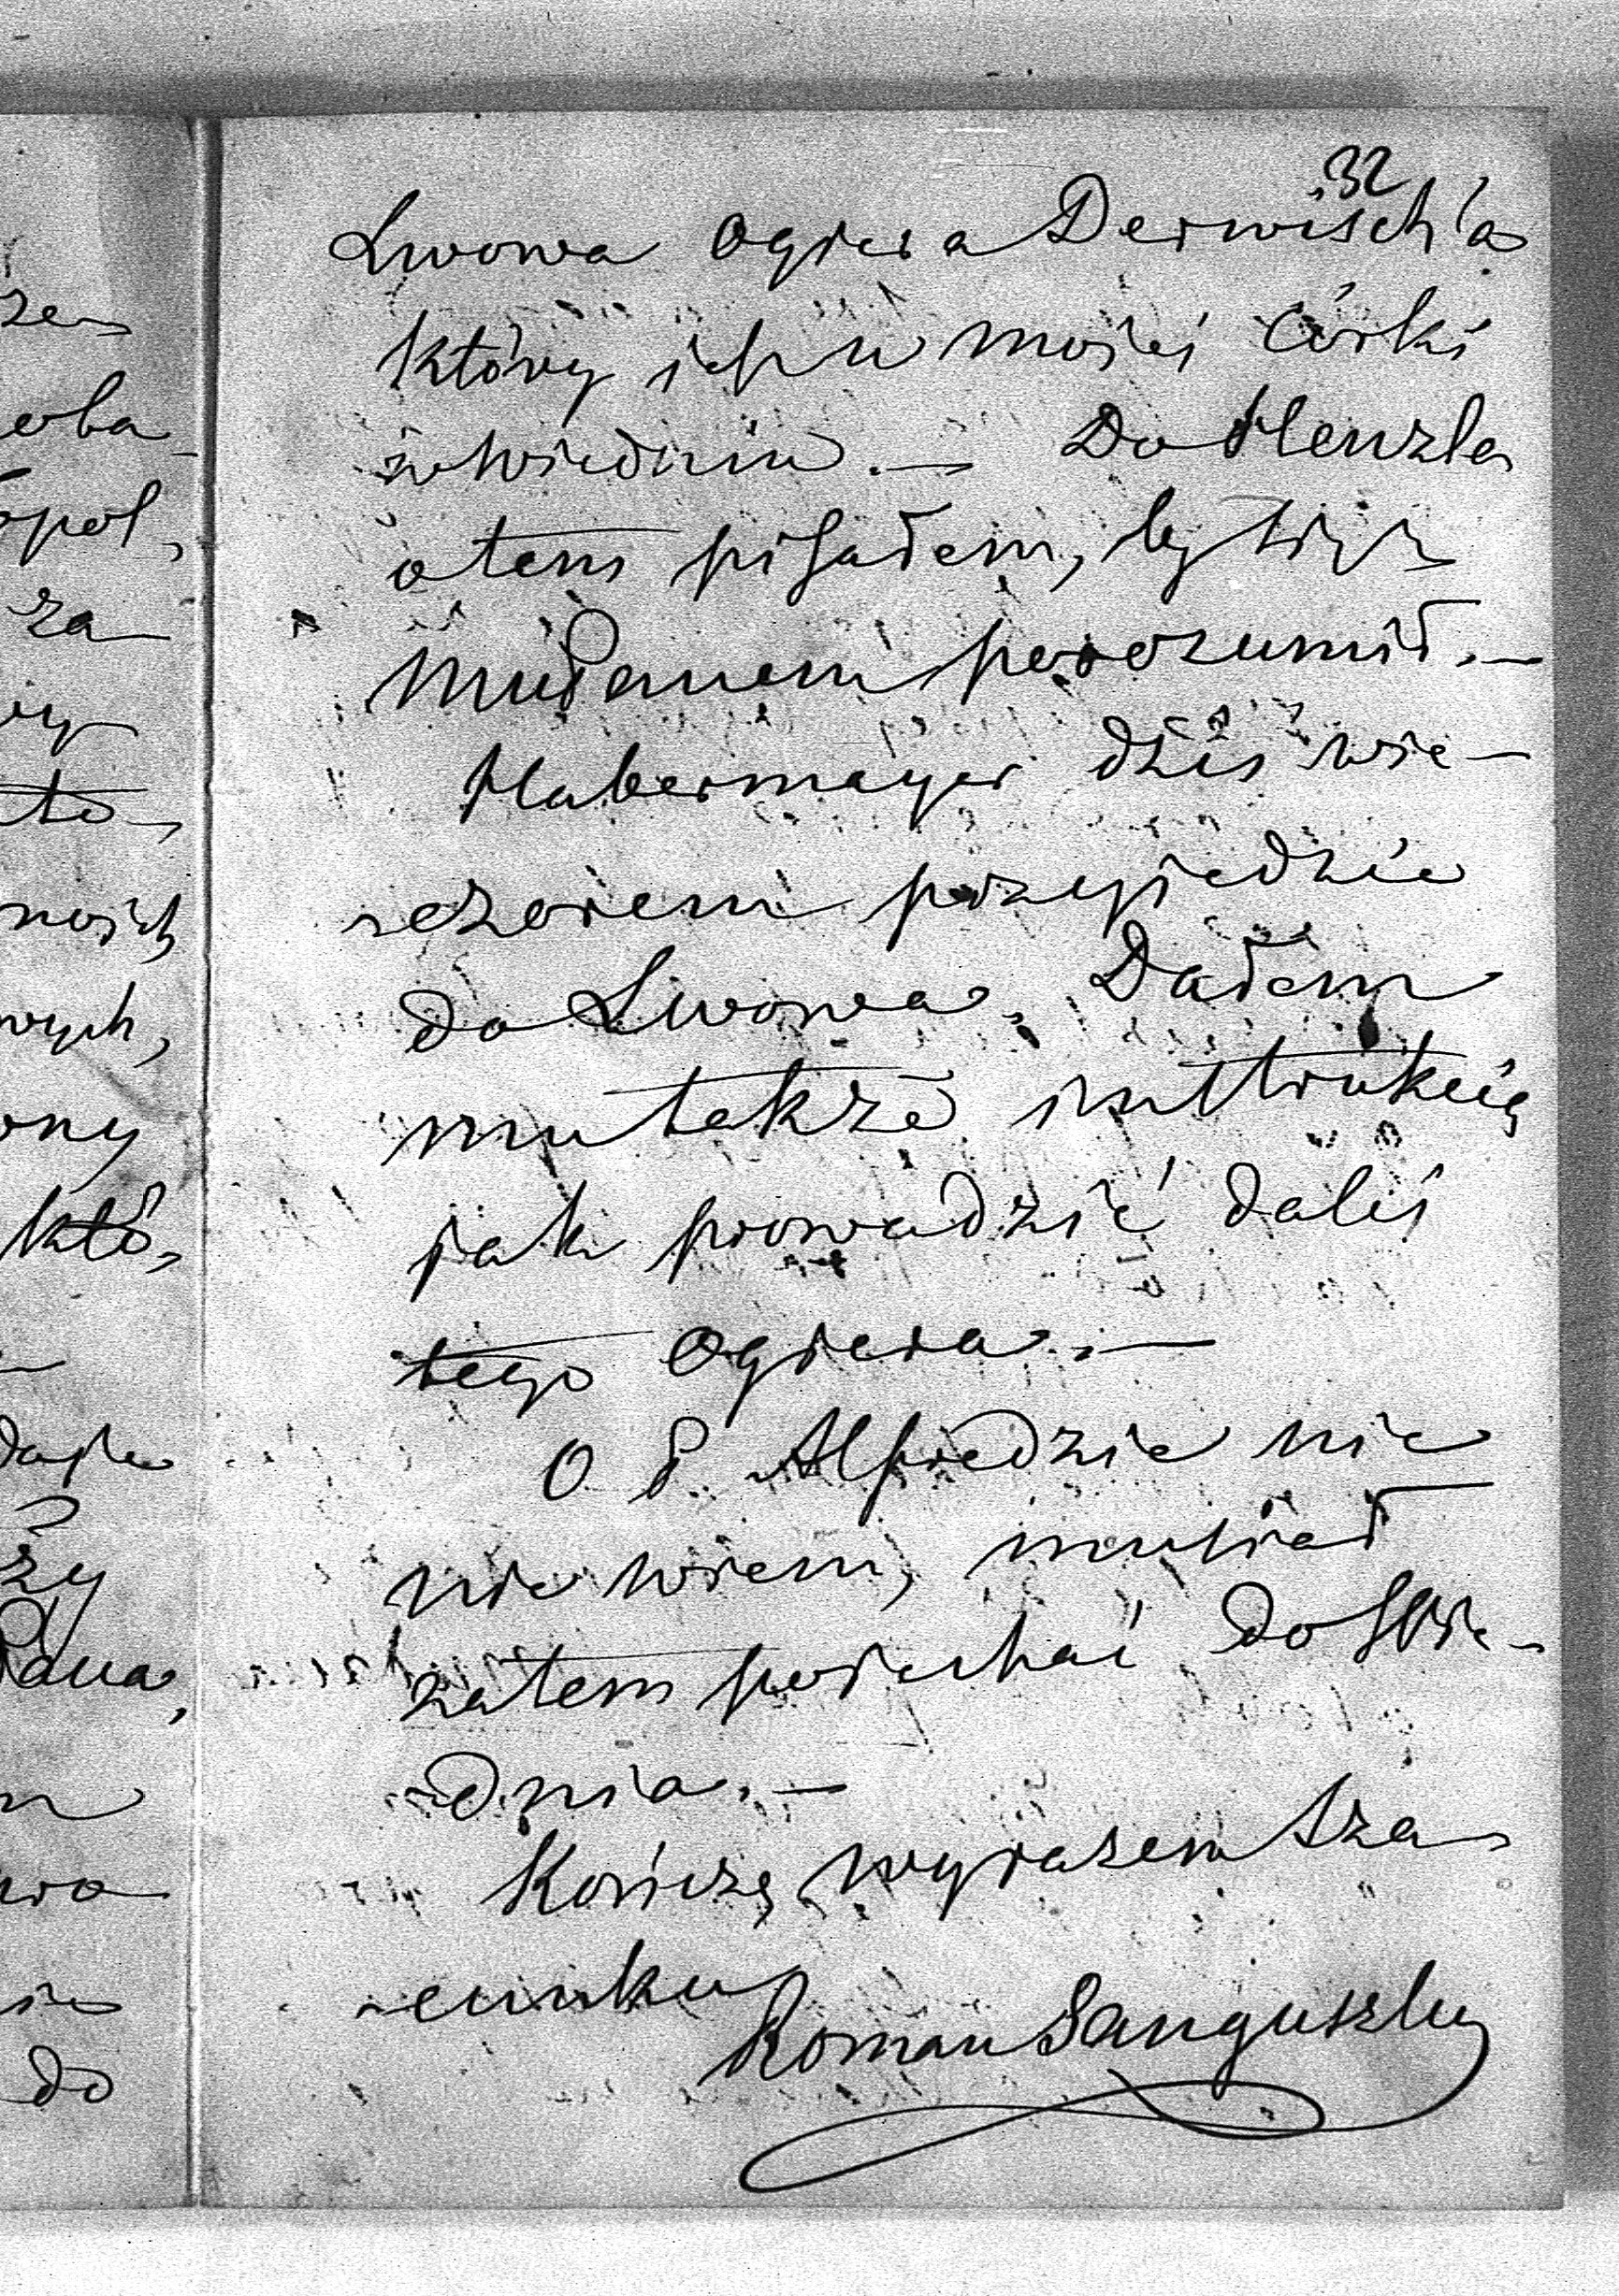 32
Lwowa Ogiera Derwisch'a
który jest u mojéj córki
w Wiedniu. — Do Henzla
o tem pisałem, by się z
Mułanem porozumił. —
Habermayer dziś wie-
czorem przyjedzie
do Lwowa. Dałem
mu także insttrukcią
jak prowadzić daléj
tego Ogiera. —
O P. Alfredzie nic
nie wiem, musiał
zatem pojechać do Wie-
dnia. —
Kończę wyrazem sza-
cunku
Roman Sanguszko
ze
oba
opol,
za
to
moich
wych,
ony
któ,
daje
ży
Pana,
do